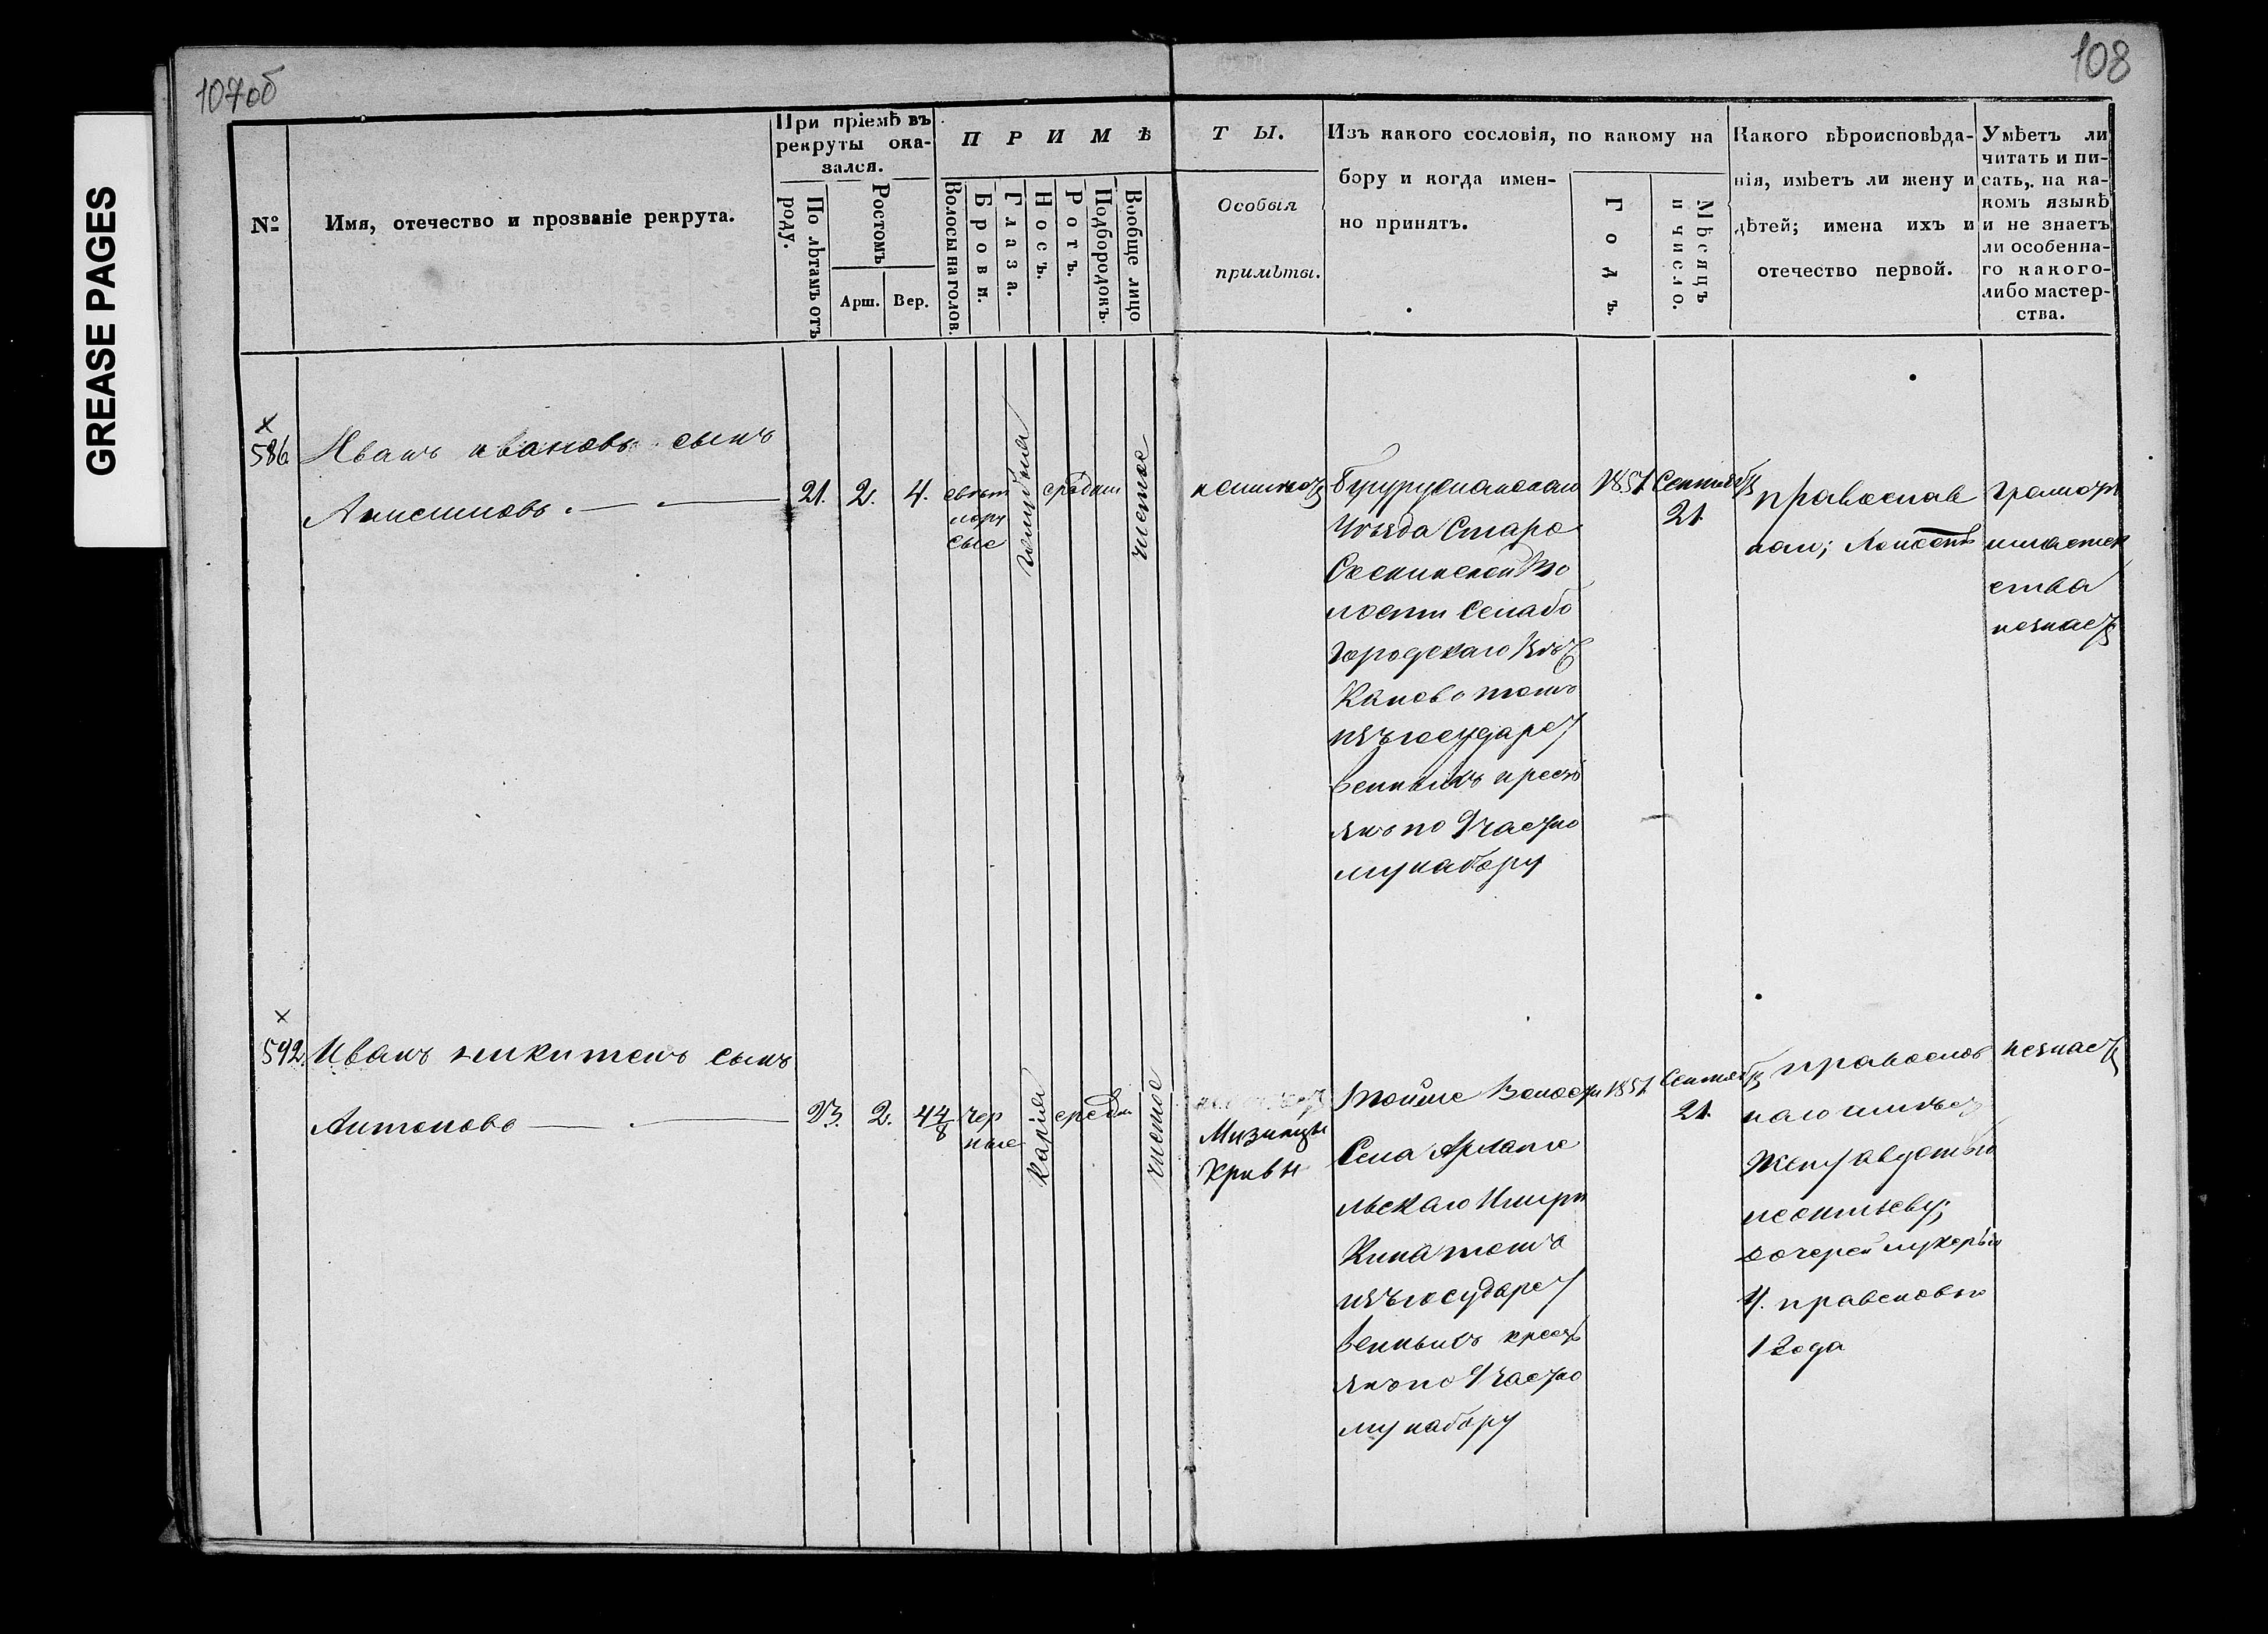 107об
108
GREASE PAGES
№
Имя, отечество и прозваніе рекрута.
При пріемѣ въ
рекруты ока-
зался.
По лѣтамъ отъ
роду.
Ростомъ
Арш.
Вер.
ПРИМѢ
Волосы на голов.
Брови.
Глаза.
Носъ.
Ротъ.
Подбородокъ.
Вообще лицо
ТЫ.
Особыя
примѣты.
Изъ какого сословія, по какому на
бору и когда имен-
но принятъ.
Годъ.
Мѣсяцъ
и число.
Какого вѣроисповѣда-
нія, имѣетъ ли жену и
дѣтей; имена ихъ и
отечество первой.
Умѣетъ ли
читать и пи-
сать, на ка-
комъ языкѣ
и не знаетъ
ли особенна-
го какого-
либо мастер-
ства.
586.
Иванъ ивановъ сынъ
Анисимовъ
21.
2.
4.
свѣт
лору
сые
голубыя
средни
чистое
Уѣзда Старо
лости Села бо
городскаго
тожъ
изъ государ
венныхъ крест
янъ по 9 частно
му набору
1851
Сентяб
21.
православ
наго; Холостъ
грамотѣ
ства
незнает
592.
Иванъ никитинъ сынъ
Антоновъ
23.
2.
4 4/8
чер
ные
карія
средн
чистое
Мизинцы
Кривы
Тойже Волости
Села Арханге
льскаго
тожъ
изъ государ
венныхъ крест
янъ по 9 частно
му набору
1851
Сентяб
21.
православ
наго имѣет
Жену авдотью
леонтьеву;
дочерей лукерью
4. прасковью
1 года
незнает